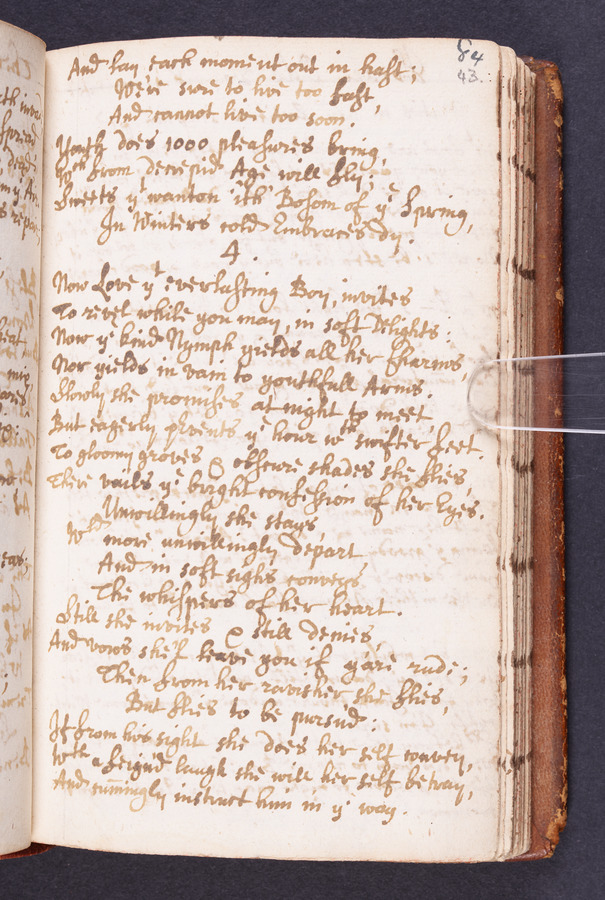 84
43.
And lay each moment out in hast;
We're sure to live too fast,
And cannot live too soon.
Youth does 1000 pleasures bring,
Wch from decrepid Age will fly;
Sweets yt wanton ith' Bosom of ye Spring,
In Winters cold Embraces dy.
4.
Now Love yt everlasting Boy, invites
To revel while you may, in soft Delights:
Now ye kind Nymph yields all her Charms,
Nor yields in vain to youthfull Arms.
Slowly she promises at night to meet
But eagerly prvents ye hour wth swifter feet.
To gloomy groves & obscure shades she flies,
There vails ye bright confession of her Eyes.
Unwillingly she stays
Wd more unwillingly depart
And in soft sighs conveys
The whispers of her heart.
Still she invites & still denies,
And vows she'l leave you if y'are rude;
Then from her ravisher she flies,
But flies to be pursu'd:
If from his sight she does her self convey,
Wth a feign'd laugh she will her self betray,
And cuñingly instruct him in ye way.